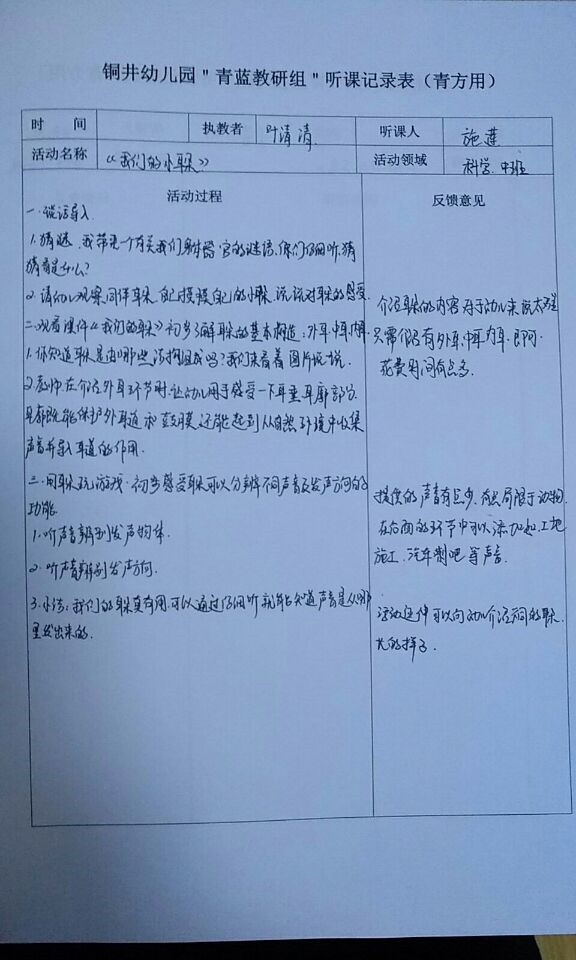 铜井幼儿园"青蓝教研组"听课记录表（青方用）
时 间 执教者 叶清清 听课人 施莲
活动名称 《我们的小耳朵》 活动领域 科学.中班
活动过程 反馈意见
一.谈话导入.
1.猜谜.我带来一个有关我们身体器官的谜语.你们仔细听.猜
猜看是什么?
2.请幼儿观察同伴耳朵.自己摸摸自己的小耳朵.说说对耳朵的感受.
二.观看课件《我们的耳朵》初步了解耳朵的基本构造:外耳.中耳.内耳.
1.你知道耳朵是由哪些结构组成吗?我们来看着图片说一说.
2.老师在介绍外耳环节时.让幼儿用手感受一下耳垂.耳廓部分.
耳廓既能保护外耳道和鼓膜.还能起到从自然环境中收集
声音并导入耳道的作用.
三.用耳朵玩游戏.初步感受耳朵可以分辨不同声音及发声方向的
功能.
1.听声音辨别发声物体.
2.听声音辨别发声方向.
3.小结:我们的耳朵真有用.可以通过仔细听就能知道声音是从哪
里发出来的.
介绍耳朵的内容对于幼儿来说太
只需介绍有外耳.中耳.内耳.即可.
花费时间有点多.
提供的声音有点少.有点局限于动物.
在后面的环节中可以添加如.工地
施工.汽车喇叭等声音.
活动延伸可以向幼儿介绍不同的耳朵.
的样子.